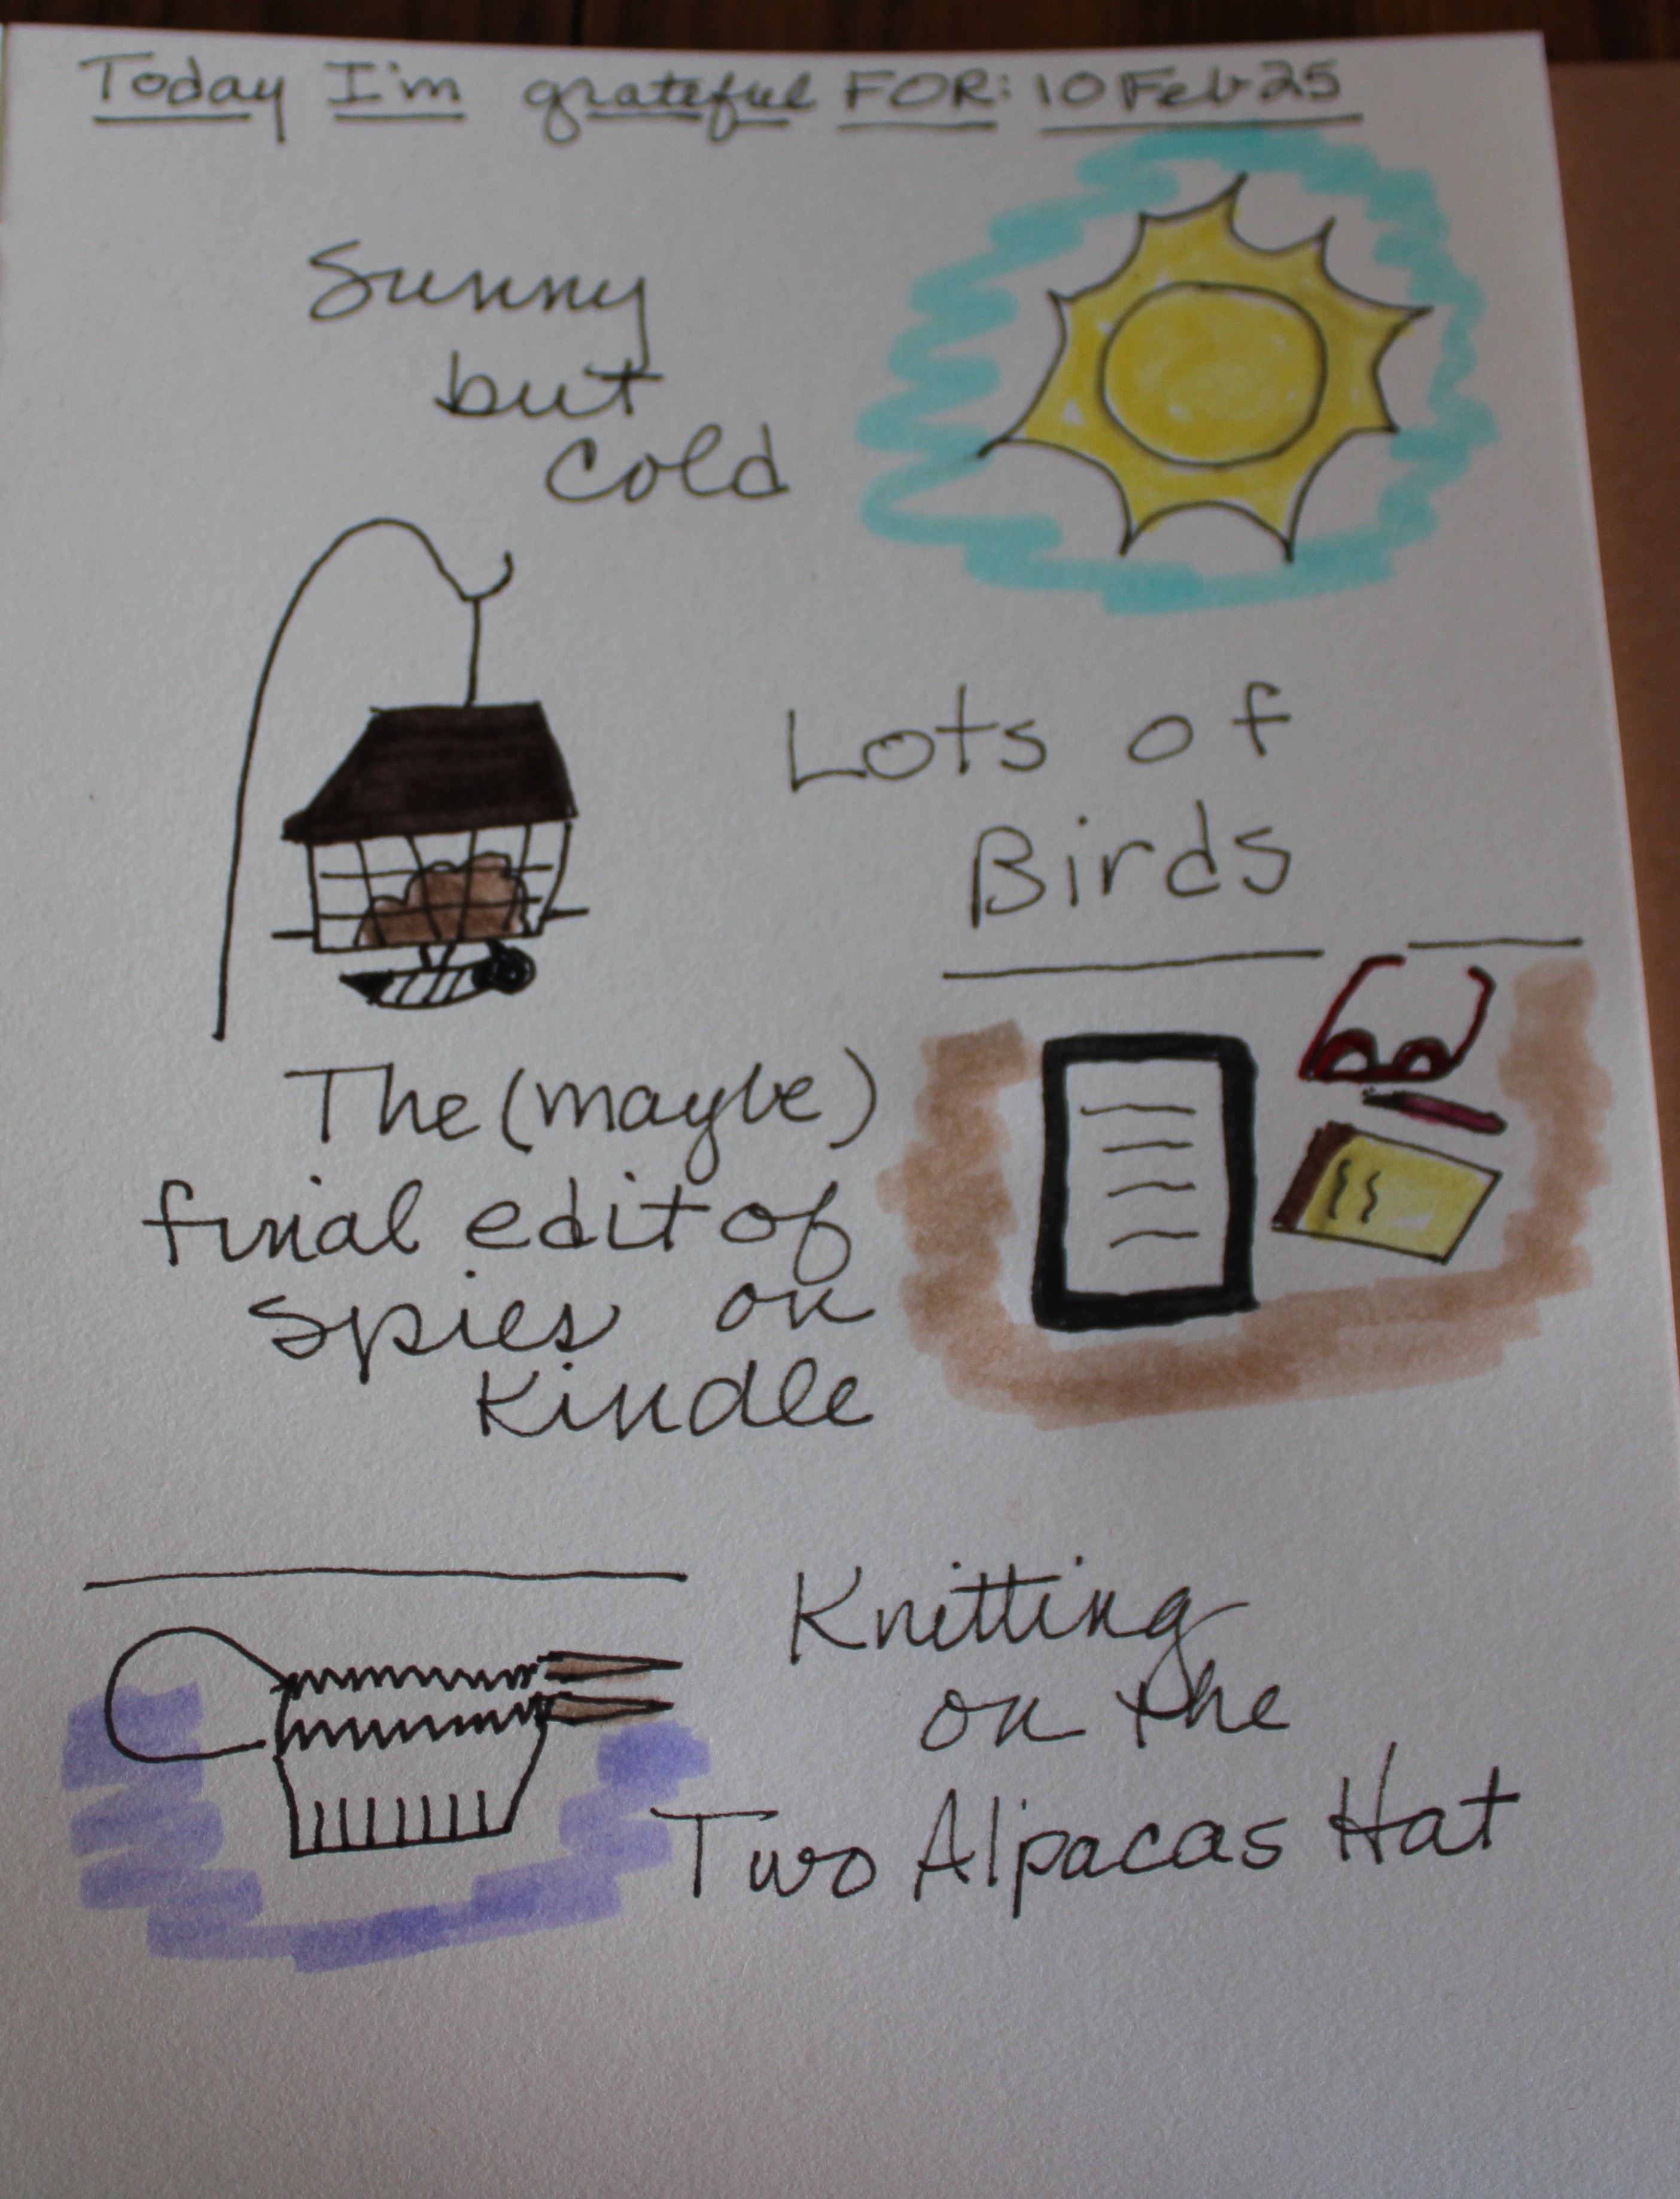 Today I'm grateful FOR: 10 Feb 25
Sunny
but
cold
Lots of
Birds
The (maybe)
final edit of
spies on
Kindle
Knitting
on the
Two Alpacas Hat